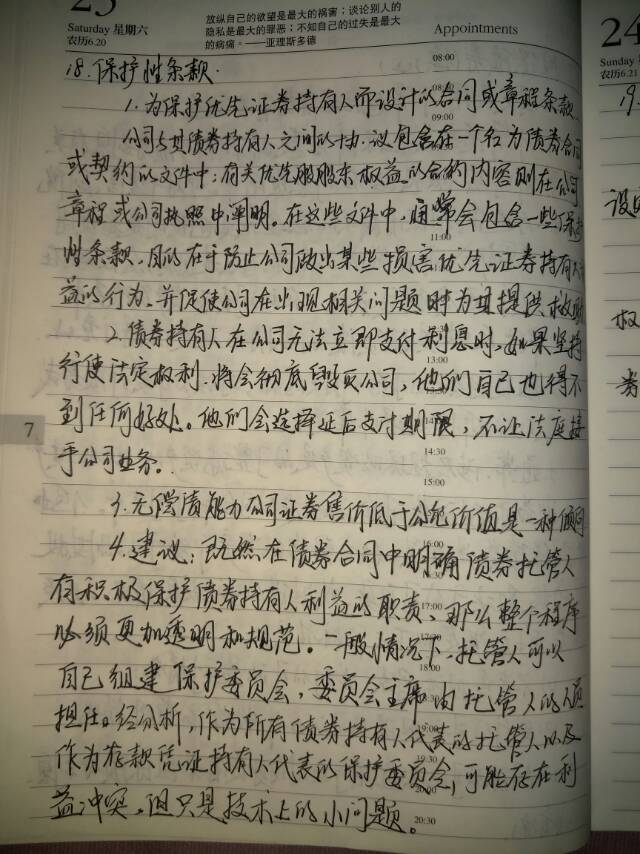 25
Saturday 星期六
农历6.20
放纵自己的欲望是最大的祸害；谈论别人的
隐私是最大的罪恶；不知自己的过失是最大
的病痛。——亚理斯多德
Appointments
08:00
18. 保护性条款.
1. 为保护优先证券持有人而设计的合同或章程条款
09:00
公司与其债券持有人之间的协议包含在一个名为债券合同
或契约的文件中；有关优先股股东权益的合约内容则在公司
章程或公司执照中阐明。在这些文件中，通常会包含一些保护
11:00
性条款，目的在于防止公司做出某些损害优先证券持有人利
益的行为，并促使公司在出现相关问题时为其提供救助
2. 债券持有人在公司无法立即支付利息时，如果坚持
13:00
行使法定权利，将会彻底毁灭公司，他们自己也得不
到任何好处。他们会选择延后支付期限，不让法庭接
7
14:30
手公司业务。
15:00
3. 无偿债能力公司证券售价低于公允价值是一种倾向
16:00
4. 建议：既然在债券合同中明确债券托管人
有积极保护债券持有人利益的职责，那么整个程序
17:00
必须更加透明和规范。一般情况下，托管人可以
18:00
自己组建保护委员会，委员会主席由托管人的人员
担任。经分析，作为所有债券持有人代表的托管人以及
19:30
作为存款凭证持有人代表的保护委员会，可能存在利
益冲突，但只是技术上的小问题。
20:30
24
Sunday
农历6.21
19.
设
权
券